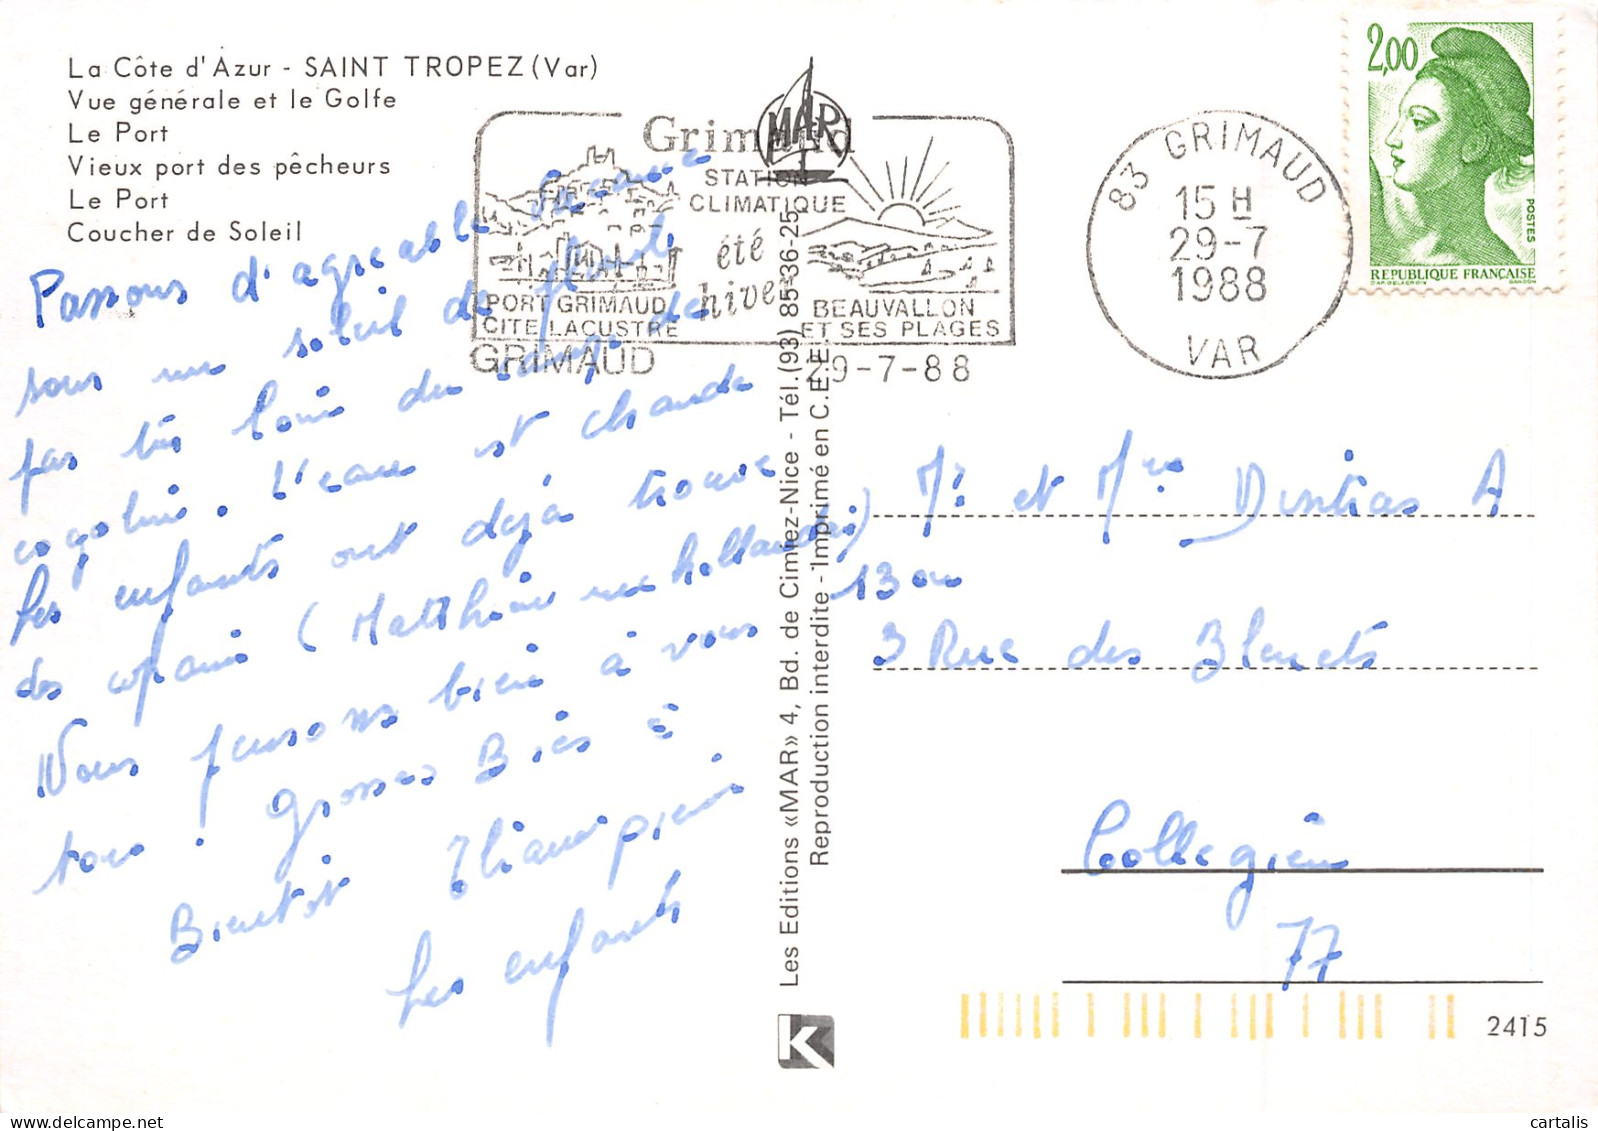 La Côte d'Azur - SAINT TROPEZ (Var)
Vue générale et le Golfe
Le Port
Vieux port des pêcheurs
Le Port
Coucher de Soleil
Grimaud
STATION
CLIMATIQUE
été
hiver
PORT GRIMAUD
CITE LACUSTRE
BEAUVALLON
ET SES PLAGES
GRIMAUD
29-7-88
MAR
83 GRIMAUD
15 H
29-7
1988
VAR
2,00
POSTES
REPUBLIQUE FRANÇAISE
D'AP. DELACROIX GANDON
Passons d'agreable vacance
sous un soleil de plomb
pas très loin du de
cogolin. L'eau est chaude
Les enfants ont déjà trouve
des copains (Matthieu un hollandais)
13 an
Nous pensons bien à vous
tous! Grosses Bises à
Bientot
Les enfants
Les Editions «MAR» 4, Bd. de Cimiez-Nice - Tél.(93) 85-36-25
Reproduction interdite - Imprimé en C.E.E.
Mr et Mme A
3 Rue des Bleuets
Collegien
77
K
2415
cartalis